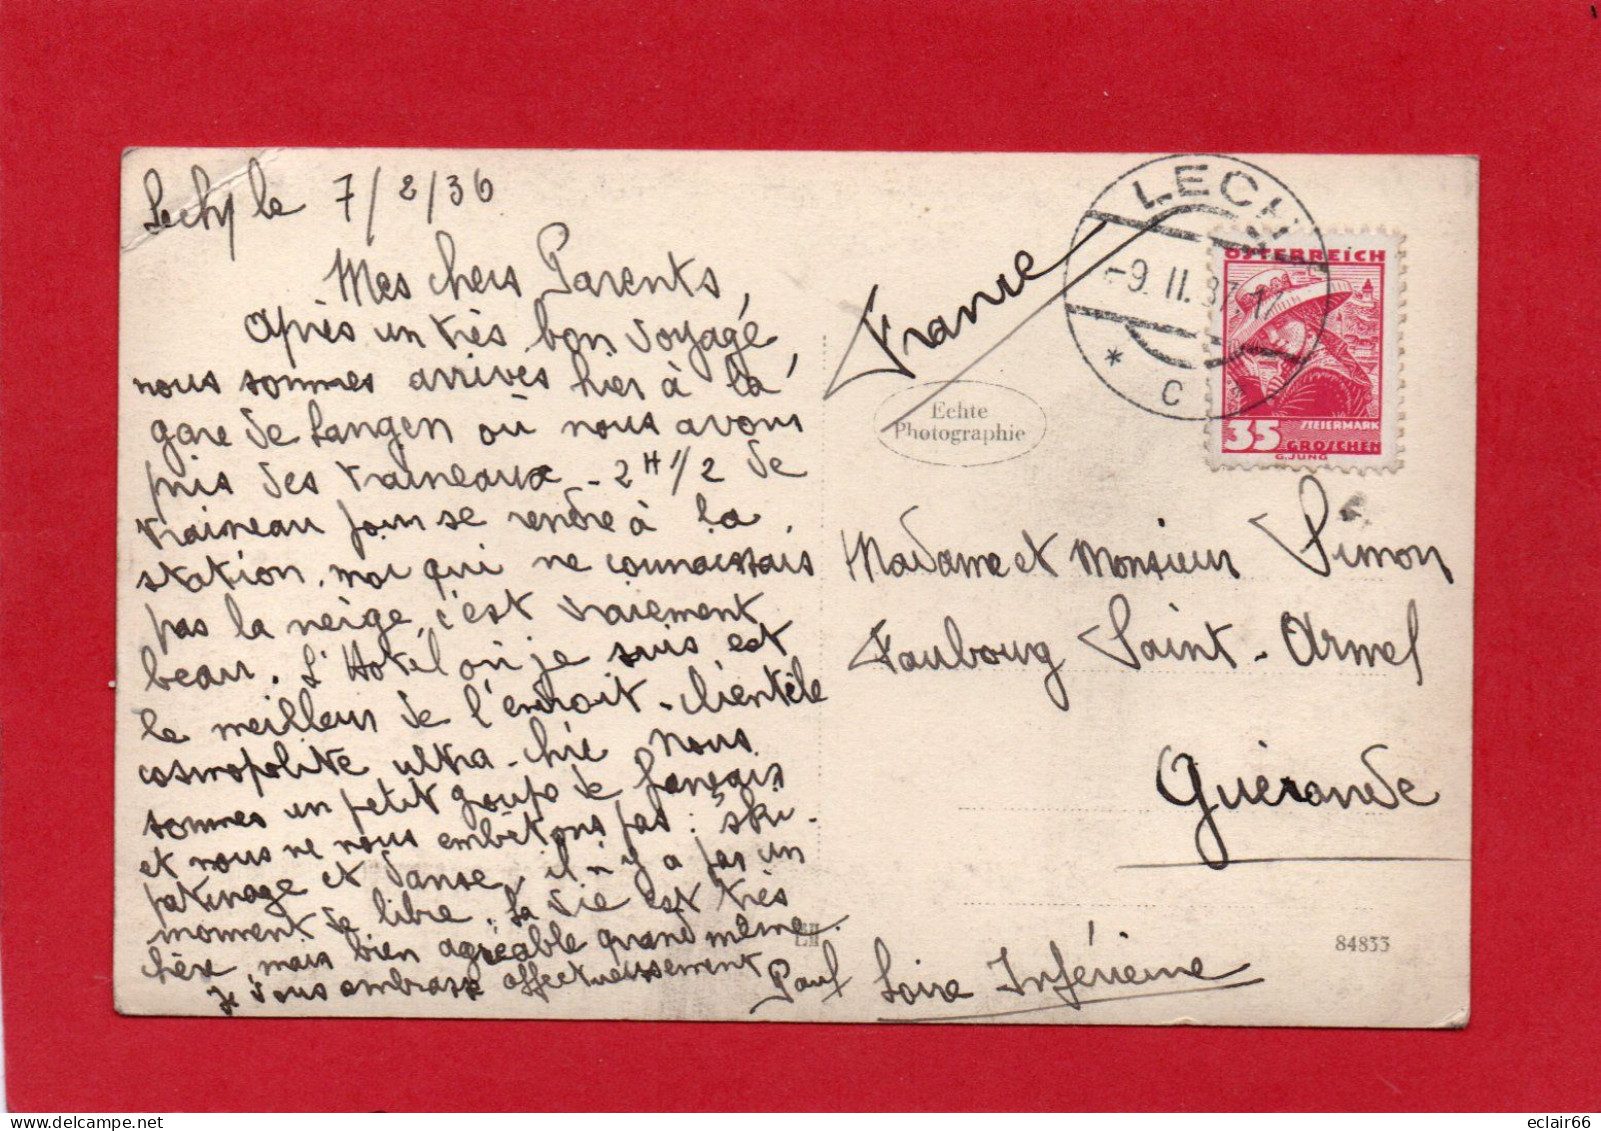 Lech le 7/2/36
Mes chers Parents,
Après un très bon voyage,
nous sommes arrivés hier à la
gare de Langen où nous avons
pris des traineaux - 2H 1/2 de
traineau pour se rendre à la
station. moi qui ne connaissais
pas la neige, c'est vraiement
beau. L'Hotel où je suis est
le meilleur de l'endroit - clientèle
cosmopolite ultra-chic Nous
sommes un petit groupe de français
et nous ne nous embêtons pas : ski -
patinage et danse, il n'y a pas un
moment de libre. La vie est très
chère, mais bien agréable quand même.
Je vous embrasse affectueusement
Paul
France
LECH
-9. II. 37. 17
* C *
ÖSTERREICH
STEIERMARK
35 GROSCHEN
G.JUNG
Echte
Photographie
Madame et Monsieur Simon
Fauboug Saint-Armel
Guérande
Loire Inférieure
84833
eclair66